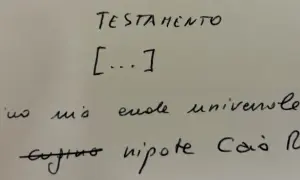 TESTAMENTO
[...]
mio erede universale
cugino nipote Caio R